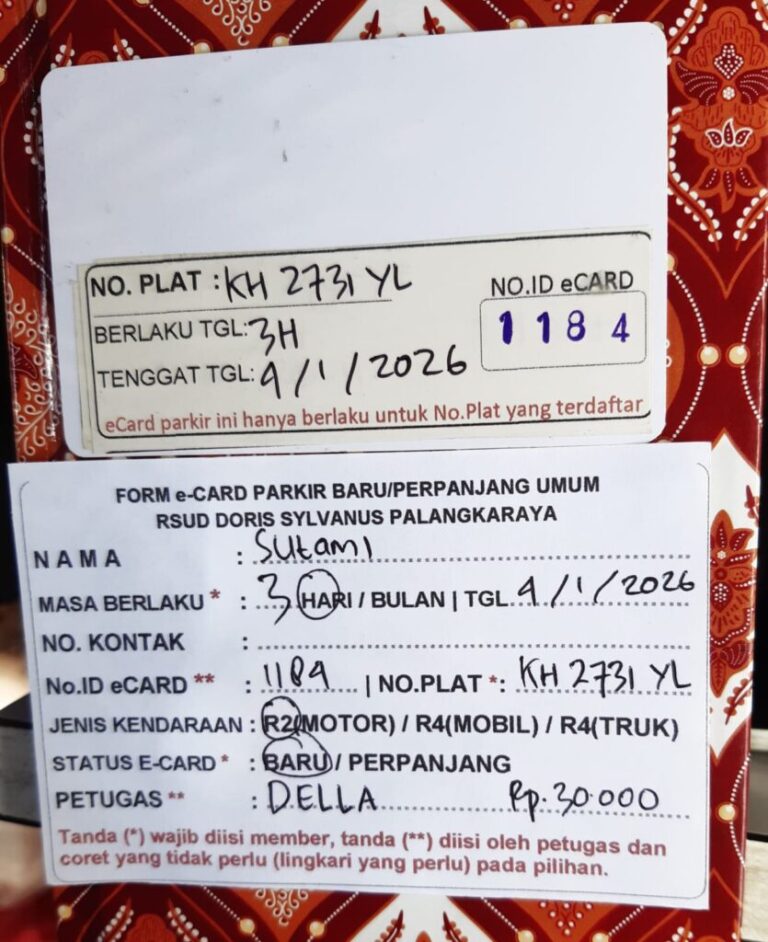 NO. PLAT : KH 2731 YL
NO.ID eCARD
1184
BERLAKU TGL: 3H
TENGGAT TGL: 4/1/2026
eCard parkir ini hanya berlaku untuk No.Plat yang terdaftar
FORM e-CARD PARKIR BARU/PERPANJANG UMUM
RSUD DORIS SYLVANUS PALANGKARAYA
NAMA : Sutami
MASA BERLAKU * : 3 HARI / BULAN | TGL 4/1/2026
NO. KONTAK :
No.ID eCARD ** : 1184 | NO.PLAT *: KH 2731 YL
JENIS KENDARAAN : R2(MOTOR) / R4(MOBIL) / R4(TRUK)
STATUS E-CARD * : BARU / PERPANJANG
PETUGAS ** : DELLA Rp. 30.000
Tanda (*) wajib diisi member, tanda (**) diisi oleh petugas dan
coret yang tidak perlu (lingkari yang perlu) pada pilihan.